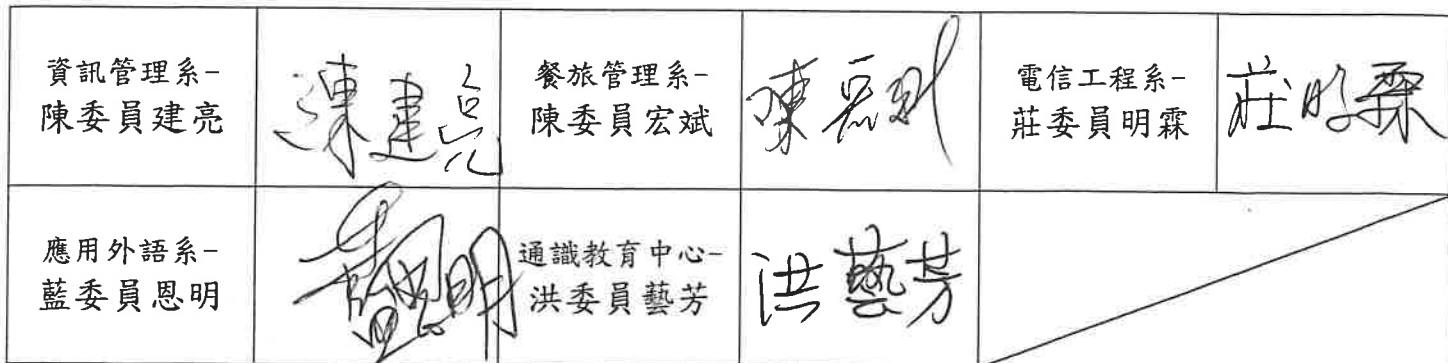 資訊管理系-
陳委員建亮
陳建亮
餐旅管理系-
陳委員宏斌
陳宏斌
電信工程系-
莊委員明霖
莊明霖
應用外語系-
藍委員恩明
藍恩明
通識教育中心-
洪委員藝芳
洪藝芳